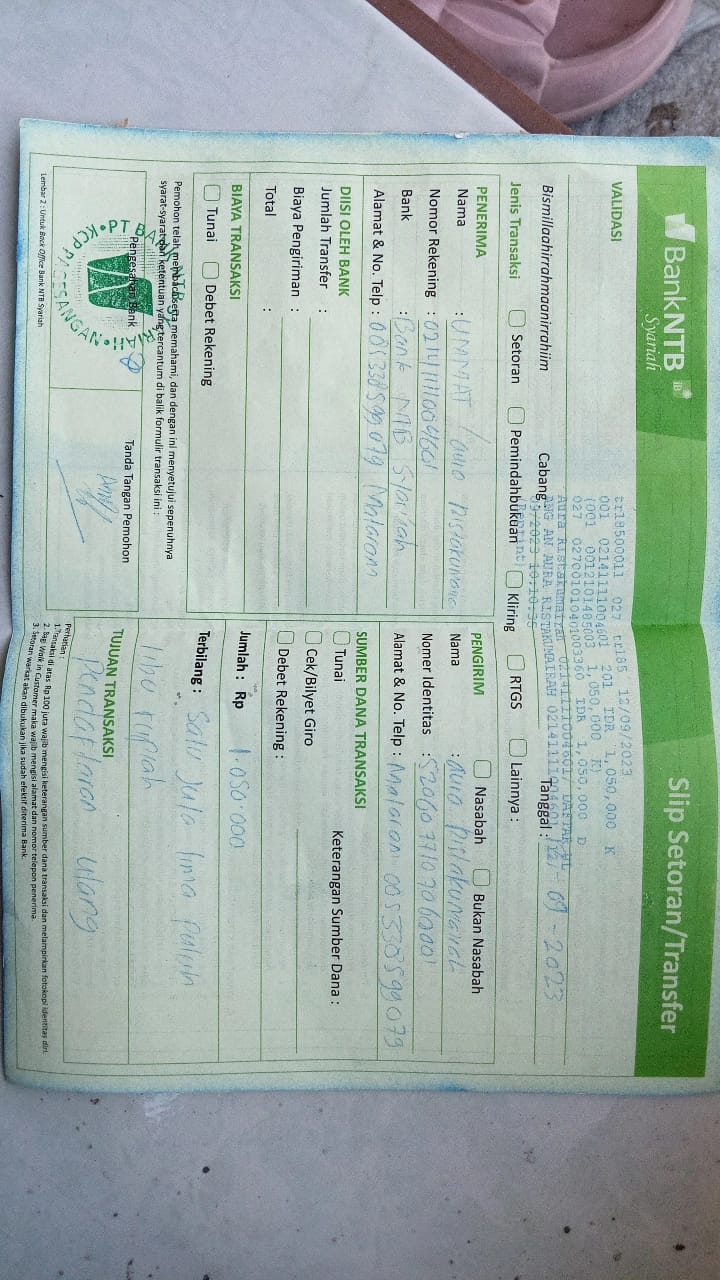 BankNTB
Syariah
iB
Slip Setoran/Transfer
VALIDASI
tr18500011 027 tr185 12/09/2023
001 02141111004601 201 IDR 1,050,000 K
(001 0012101485003 1,050,000 K)
027 0270010104001003360 IDR 1,050,000 D
Aura Ristakumairah 02141111004601/ DAFTAR UL
ANG AN AURA RISTAKUMAIRAH 02141111004601
(Reprint)
Bismillaahirrahmaanirrahiim
Cabang
Tanggal : 12 - 09 - 2023
Jenis Transaksi
Setoran
Pemindahbukuan
Kliring
RTGS
Lainnya :
PENERIMA
Nama :
UMMAT /
Nomor Rekening : 02141111004601
Bank : Bank NTB Syariah
Alamat & No. Telp : 085338599079 Mataram
DIISI OLEH BANK
Jumlah Transfer :
Biaya Pengiriman :
Total :
BIAYA TRANSAKSI
Tunai
Debet Rekening
Pemohon telah membaca serta memahami, dan dengan ini menyetujui sepenuhnya
syarat-syarat dan ketentuan yang tercantum di balik formulir transaksi ini :
Pengesahan Bank
Tanda Tangan Pemohon
Lembar 2 : Untuk Back Office Bank NTB Syariah
PENGIRIM
Nasabah
Bukan Nasabah
Nama :
Nomer Identitas :
Alamat & No. Telp : Mataram 085338599079
SUMBER DANA TRANSAKSI
Tunai
Keterangan Sumber Dana :
Cek/Bilyet Giro
Debet Rekening :
Jumlah : Rp 1.050.000
Terbilang : Satu Juta lima puluh
ribu rupiah
TUJUAN TRANSAKSI
Pendaftaran ulang
Perhatian :
1. Transaksi di atas Rp 100 juta wajib mengisi keterangan sumber dana transaksi dan melampirkan fotokopi identitas diri.
2. Bagi Walk in Customer maka wajib mengisi alamat dan nomor telepon penerima.
3. Setoran warkat akan dibukukan jika sudah efektif diterima Bank.